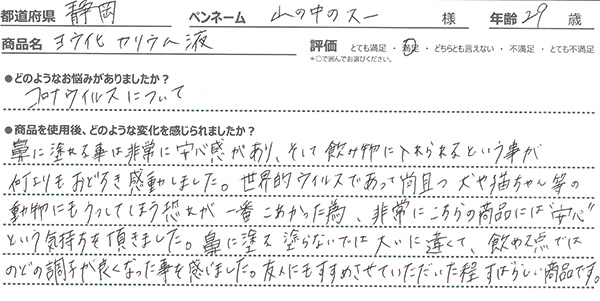 都道府県 静岡 ペンネーム 山の中のスー 様 年齢 29 歳
商品名 ヨウ化カリウム液 評価 とても満足 ・ 満足 ・ どちらとも言えない ・ 不満足 ・ とても不満足
*○で囲んでお選びください。
●どのようなお悩みがありましたか？
コロナウイルスについて
●商品を使用後、どのような変化を感じられましたか？
鼻に塗れる事は非常に安心感があり、そして飲み物に入れられるという事が
何よりもおどろき感動しました。世界的ウイルスであって尚且つ犬や猫ちゃん等の
動物にもうつしてしまう恐れが一番こわかった為、非常にこちらの商品には"安心"
という気持ちを頂きました。鼻に塗る塗らないでは大いに違くて、飲や点では
のどの調子が良くなった事を感じました。友人にもすすめさせていただいた程すばらしい商品です。